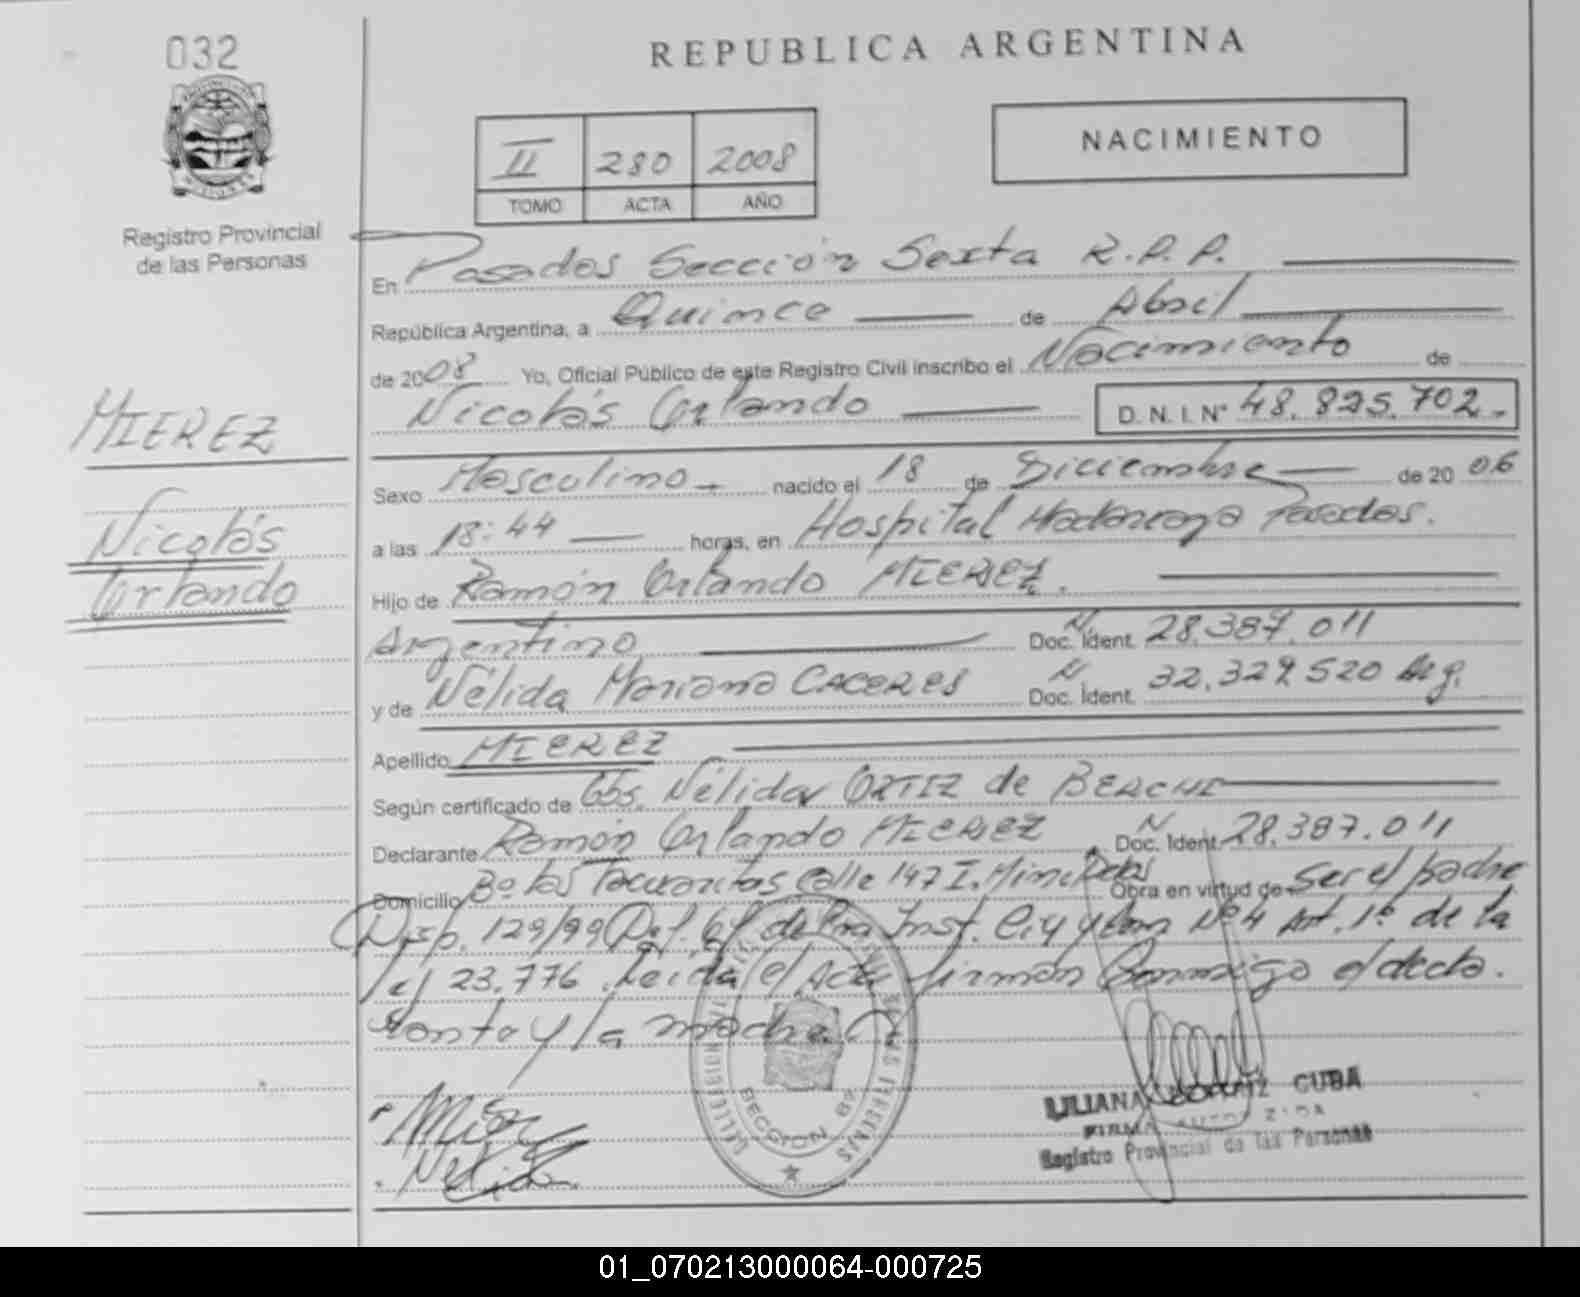 032
REPUBLICA ARGENTINA
NACIMIENTO
II 280 2008
TOMO ACTA AÑO
Registro Provincial
de las Personas
En Posadas Sección Sexta R.P.P.
República Argentina, a Quince de Abril
de 2008 Yo, Oficial Público de este Registro Civil inscribo el Nacimiento de
Nicolás Orlando D.N.I. N° 48.825.702.
MIEREZ
Nicolás
Orlando
Sexo Masculino nacido el 18 de Diciembre de 2006
a las 18:44 horas, en Hospital Madariaga Posadas.
Hijo de Ramón Orlando MIEREZ.
Argentino Doc. Ident. 28.387.011
y de Nélida Mariana CACERES Doc. Ident. 32.329.520 Arg.
Apellido MIEREZ
Según certificado de Obs. Nélida ORTIZ de
Declarante Ramón Orlando MIEREZ Doc. Ident. 28.387.011
Domicilio Bº Las Tacuaritas Calle 147 I. Miní Pdas Obra en virtud de Ser el padre
Disp. 129/99 Ref. de Inst. Nº 4 Art. 1º de la
ley 23.776. Leída el Acta firman Conmigo el decla.
rante y la madre
SECCION
LILIANA CUBA
FIRMA
Registro Provincial de las Personas
01_070213000064-000725